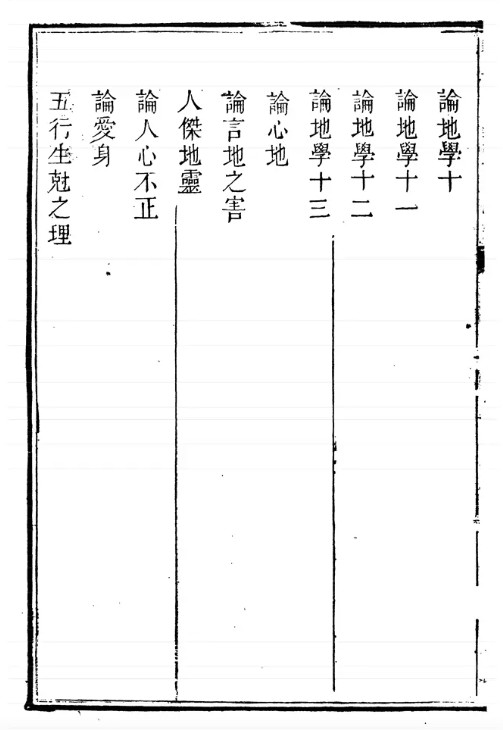 論地學十
論地學十一
論地學十二
論地學十三
論心地
論言地之害
人傑地靈
論人心不正
論愛身
五行生尅之理